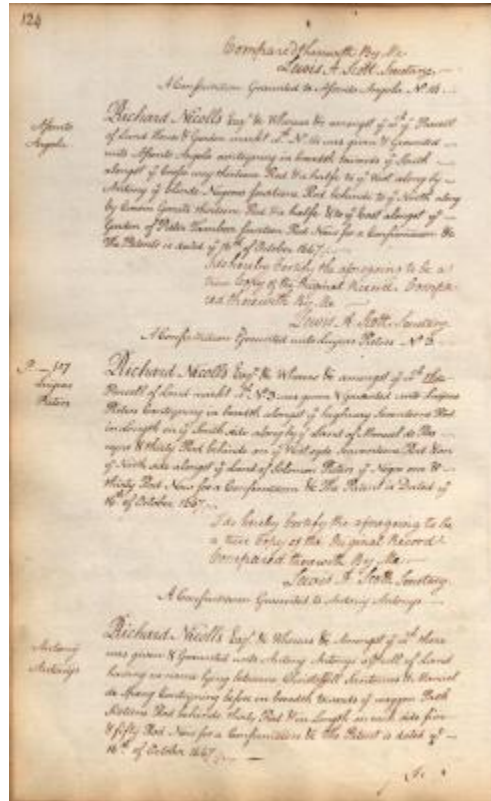 124
Compared therewith By Me
Lewis A Scott Secretary
A Confirmation Graunted to Assento Angola N. 14
Assento
Angola
Richard Nicolls Esqr. &c Whereas &c amongst ye
of Land House & Garden markt N. 14 was given & Graunted
unto Assento Angola containing in breadth towards ye South
alongst ye thirteen Rod & a halfe to ye West along by
Antony ye blinde Negroes fourteen Rod behinde to ye North along
by thirteen Rod & a halfe & to ye East alongst ye
Garden of Pieter fourteen Rod Now for a Confirmation &c
The Patent is dated ye 16th of October 1667
I do hereby Certify the aforegoing to be a
true Copy of the Original Record Compa-
red therewith By Me
Lewis A Scott Secretary
A Confirmation Graunted unto Pieters No 3
P. 117
Pieters
Richard Nicolls Esqr. &c Whereas &c amongst ye
of Land markt No 3 was given & Graunted unto
Pieters Containing in breadth alongst ye highway Seventeen Rod
in Length on ye South side along by ye Land of Manuel de
& thirty Rod behinde on ye West syde Seventeen Rod & on
ye North side alongst ye Land of Solomon Pieters ye Negro one &
thirty Rod Now for a Confirmation &c The Patent is Dated ye
16th of October 1667
I do hereby Certify the aforegoing to be
a true Copy of the Original Record
Compared therewith By Me
Lewis A Scott Secretary
A Confirmation Graunted to Antony Antonys
Antony
Antonys
Richard Nicolls Esqr. &c Whereas &c Amongst ye there
was given & Graunted unto Antony Antonys a of Land
having no name lying between & Manuel
de Containing before in breadth towards ye waggon Path
Rod behinde thirty Rod & in Length in each side five
& fifty Rod Now for a Confirmation &c The Patent is dated ye
16th of October 1667